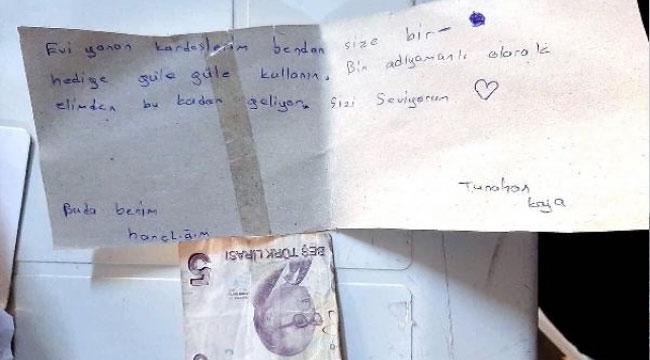 Evi yanan kardeşlerim benden size bir
hediye güle güle kullanın. Bir adıyamanlı olarak
elimden bu kadar geliyor. Sizi Seviyorum
Tunahan
kaya
Buda benim
harçlığım
5
BEŞ TÜRK LİRASI